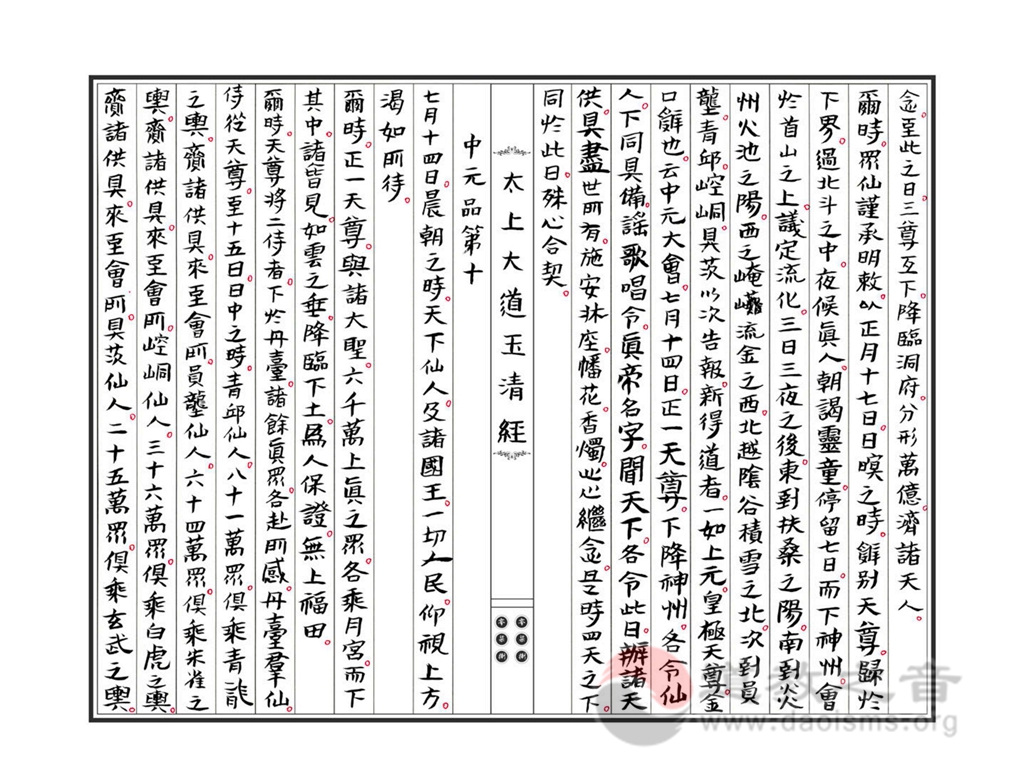 念至此之日三尊互下降臨洞府分形萬億濟諸天人
爾時眾仙謹承明敕以正月十七日日暝之時辭别天尊歸於
下界過北斗之中夜候眞人朝謁靈童停留七日而下神州會
於首山之上議定流化三日三夜之後東到扶桑之陽南到炎
州火池之陽西之崦嵫流金之西北越陰谷積雪之北次到員
壟青邱崆峒具茨以次告報新得道者一如上元皇極天尊金
口辭也云中元大會七月十四日正一天尊下降神州各令仙
人下同具備謠歌唱令眞帝名字聞天下各令此日辦諸天
供具盡世所有施安牀座幡花香燭心心繼念是時四天之下
同於此日殊心合契
太上大道玉清經
中元品第十
七月十四日晨朝之時天下仙人及諸國王一切人民仰視上方
渴如所待
爾時正一天尊與諸大聖六千萬上眞之眾各乘月宮而下
其中諸皆見如雲之垂降臨下土爲人保證無上福田
爾時天尊將二侍者下於丹臺諸餘眞眾各赴所感丹臺羣仙
侍從天尊至十五日日中之時青邱仙人八十一萬眾俱乘青龍
之輿齎諸供具來至會所員壟仙人六十四萬眾俱乘朱雀之
輿齎諸供具來至會所崆峒仙人三十六萬眾俱乘白虎之輿
齎諸供具來至會所具茨仙人二十五萬眾俱乘玄武之輿
道教之音
www.daoisms.org